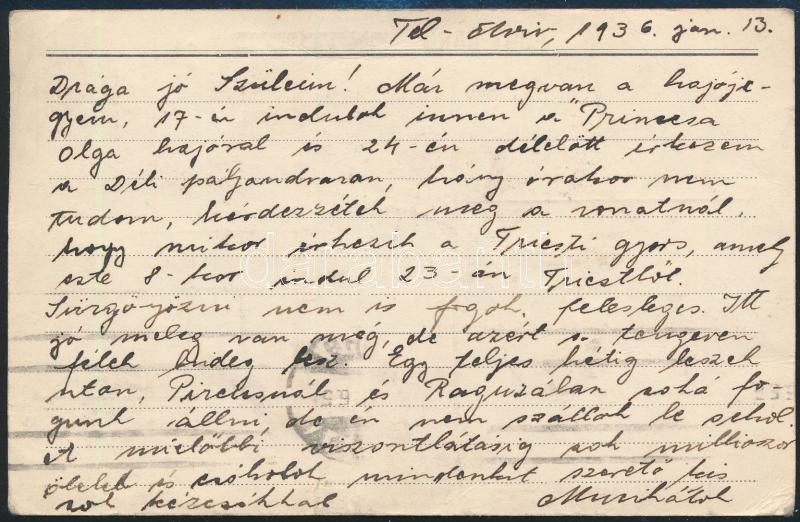 Tel-Aviv, 1936. jan. 13.
Drága jó Szüleim! Már megvan a hajóje-
gyem, 17-én indulok innen a "Princesa
Olga hajóval és 24-én délelött érkezem
a Déli pályaudvaran, hány órakor nem
tudom, kérdezzétek meg a vonatnál,
hogy mikor érkezik a Trieszti gyors, amely
este 8-kor indul 23-án Triesttöl.
Sürgönyözni nem is fogok, felesleges. Itt
jó meleg van még, de azért a tengeren
félek hideg lesz. Egy teljes hétig leszek
uton, Pireusnál és Raguzálan soká fo-
gunk állni, de én nem szállok le sehol.
A mielöbbi viszontlátásig sok milliószor
ölelek és csókolok mindenkit szerető kis
sok kézcsókkal Munikátok
darabanth